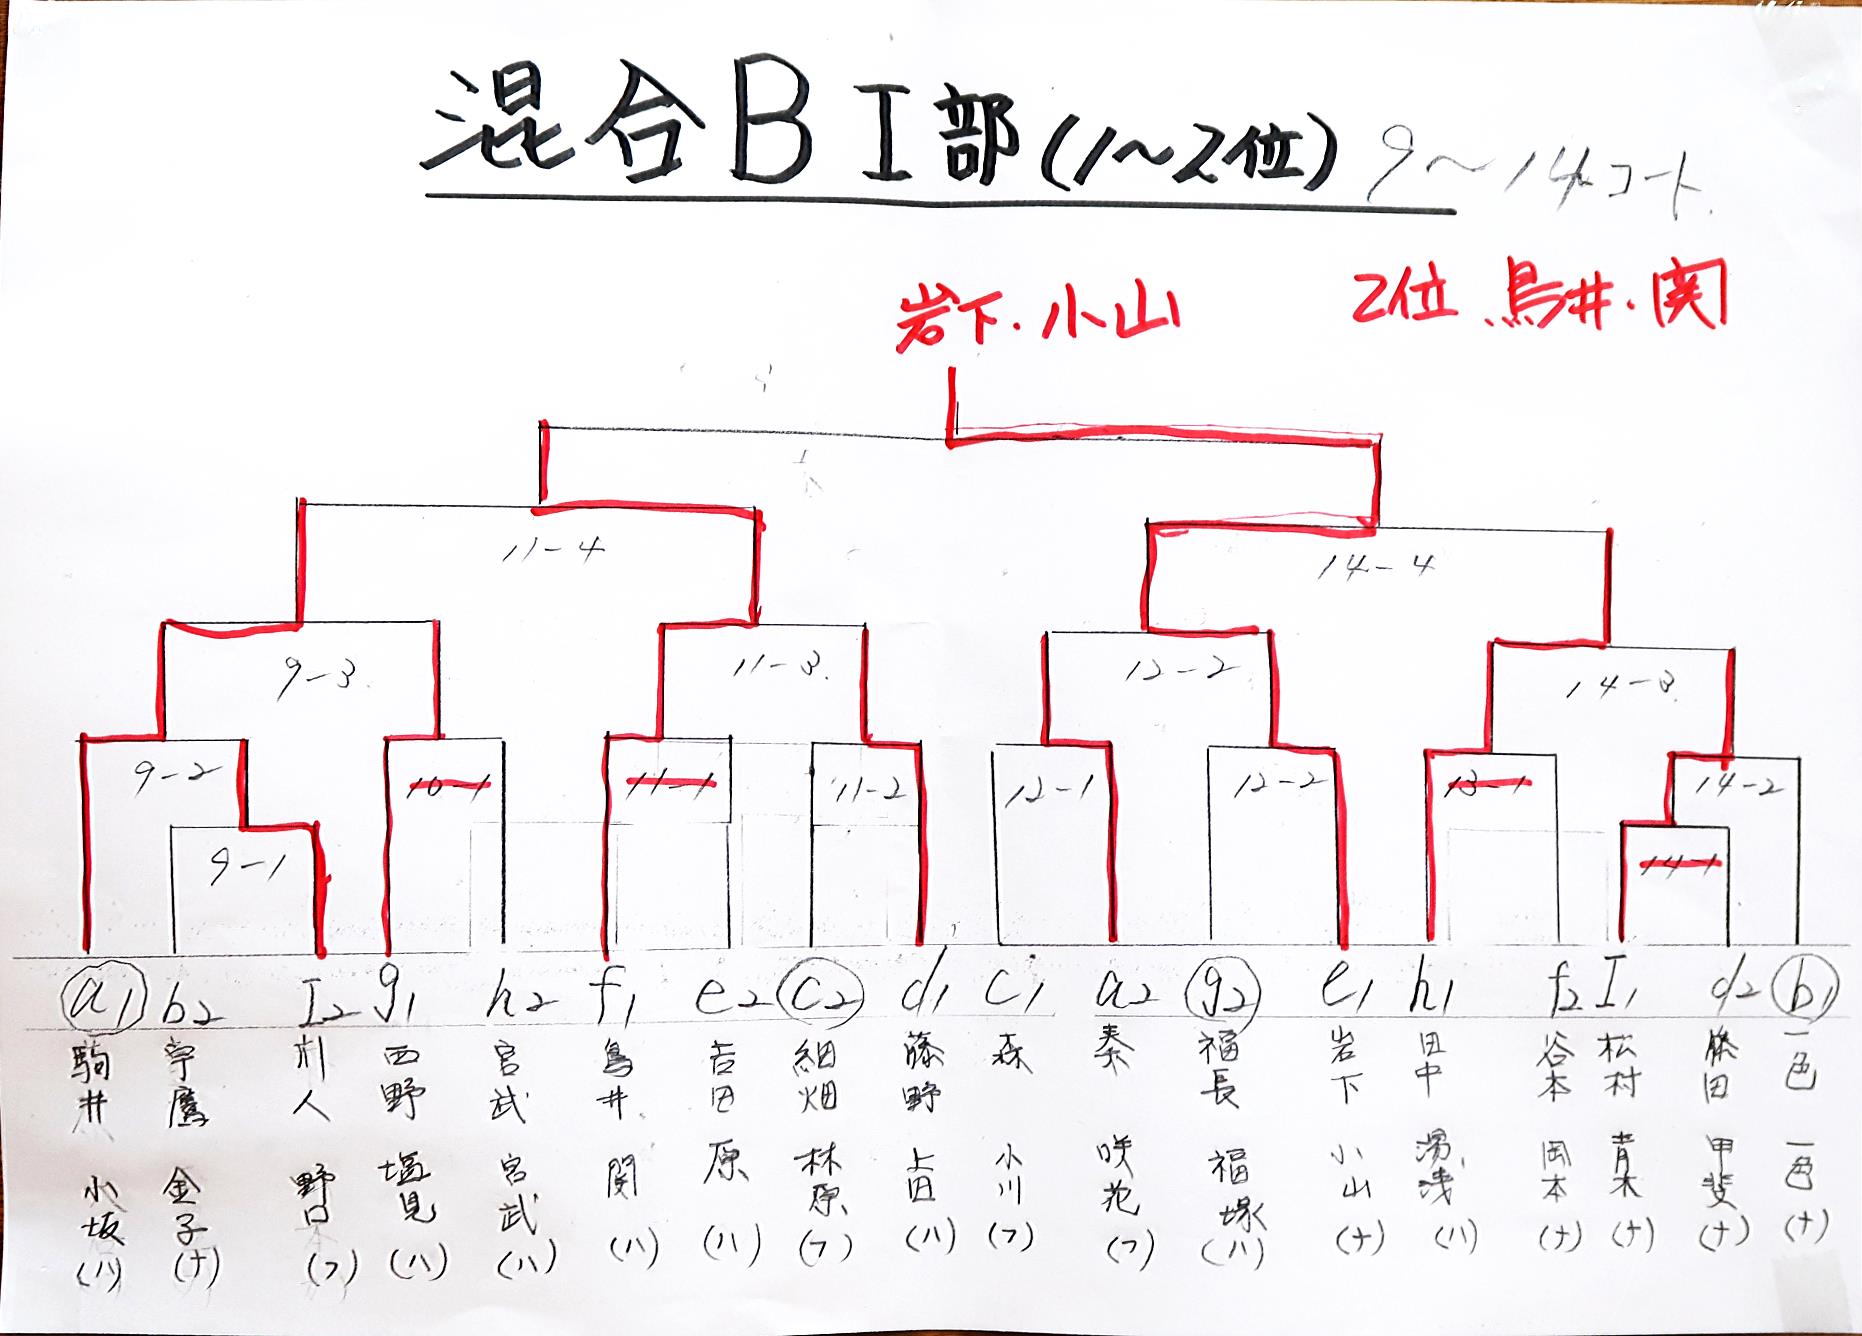 混合B I部 (1〜2位) 9〜14コート
岩下・小山
2位 鳥井・関
11-4 14-4
9-3 11-3 12-2 14-3
9-2 10-1 11-1 11-2 12-1 12-2 13-1 14-2
9-1 14-1
a1 b2 I2 g1 h2 f1 e2 c2 d1 c1 a2 g2 e1 h1 f2 I1 d2 b1
駒井 小坂 (ハ)
宇鷹 金子 (十)
野口 (フ)
西野 塩見 (ハ)
宮武 宮武 (ハ)
鳥井 関 (ハ)
吉田 原 (ハ)
細畑 林原 (フ)
藤野 上田 (ハ)
森 小川 (フ)
秦 咲花 (フ)
福長 福塚 (ハ)
岩下 小山 (十)
田中 湯浅 (ハ)
谷本 岡本 (十)
松村 青木 (十)
藤田 甲斐 (十)
一色 一色 (十)